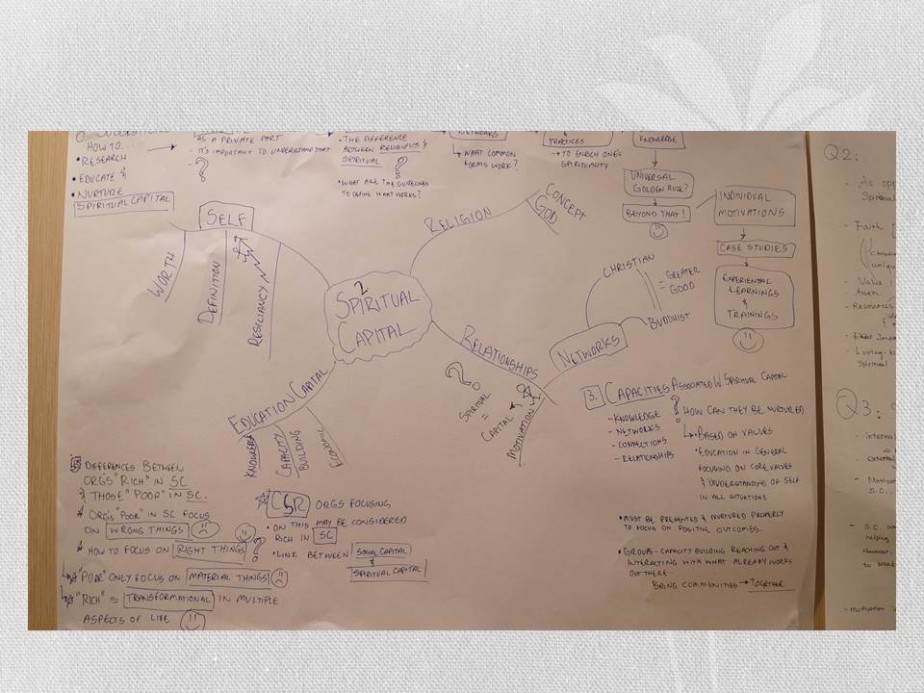 HOW TO...
• RESEARCH
• EDUCATE &
• NURTURE
SPIRITUAL CAPITAL
AS A PRIVATE PART
- IT'S IMPORTANT TO UNDERSTAND THAT
?
- THE DIFFERENCE
BETWEEN RELIGIOUS &
SPIRITUAL
?
• WHAT ARE THE GUIDELINES
TO DEFINE WHAT WORKS?
NETWORKS
WHAT COMMON
FORMS WORK?
PRACTICES
→ TO ENRICH ONE'S
SPIRITUALITY
KNOWLEDGE
UNIVERSAL
GOLDEN RULE?
BEYOND THAT!
INDIVIDUAL
MOTIVATIONS
CASE STUDIES
EXPERIENTIAL
LEARNINGS
&
TRAININGS
SELF
WORTH
DEFINITION
RESILIANCY
2
SPIRITUAL
CAPITAL
RELIGION
CONCEPT
GOD
RELATIONSHIPS
?
SPIRITUAL
=
CAPITAL
MOTIVATION
NETWORKS
CHRISTIAN
= GREATER
GOOD
BUDDHIST
EDUCATION CAPITAL
KNOWLEDGE
CAPACITY
BUILDING
ECONOMIC
3. CAPACITIES ASSOCIATED W SPIRITUAL CAPITAL
- KNOWLEDGE
- NETWORKS
- CONNECTIONS
- RELATIONSHIPS
? HOW CAN THEY BE NURTURED
→ BASED ON VALUES
• EDUCATION IN GENERAL
FOCUSING ON CORE VALUES
& UNDERSTANDING OF SELF
IN ALL SITUATIONS
• MUST BE PRESENTED & NURTURED PROPERLY
TO FOCUS ON POSITIVE OUTCOMES.
• GROUPS - CAPACITY BUILDING REACHING OUT &
INTERACTING WITH WHAT ALREADY WORKS
OUT THERE
BRING COMMUNITIES → TOGETHER
DIFFERENCES BETWEEN
ORGS "RICH" IN SC
& THOSE "POOR" IN SC.
* ORGS "POOR" IN SC FOCUS
ON WRONG THINGS
* HOW TO FOCUS ON RIGHT THINGS ?
"POOR" ONLY FOCUS ON MATERIAL THINGS
"RICH" = TRANSFORMATIONAL IN MULTIPLE
ASPECTS OF LIFE
CSR ORGS FOCUSING
• ON THIS MAY BE CONSIDERED
RICH IN SC
• LINK BETWEEN SOCIAL CAPITAL
&
SPIRITUAL CAPITAL
Q2:
Q3: